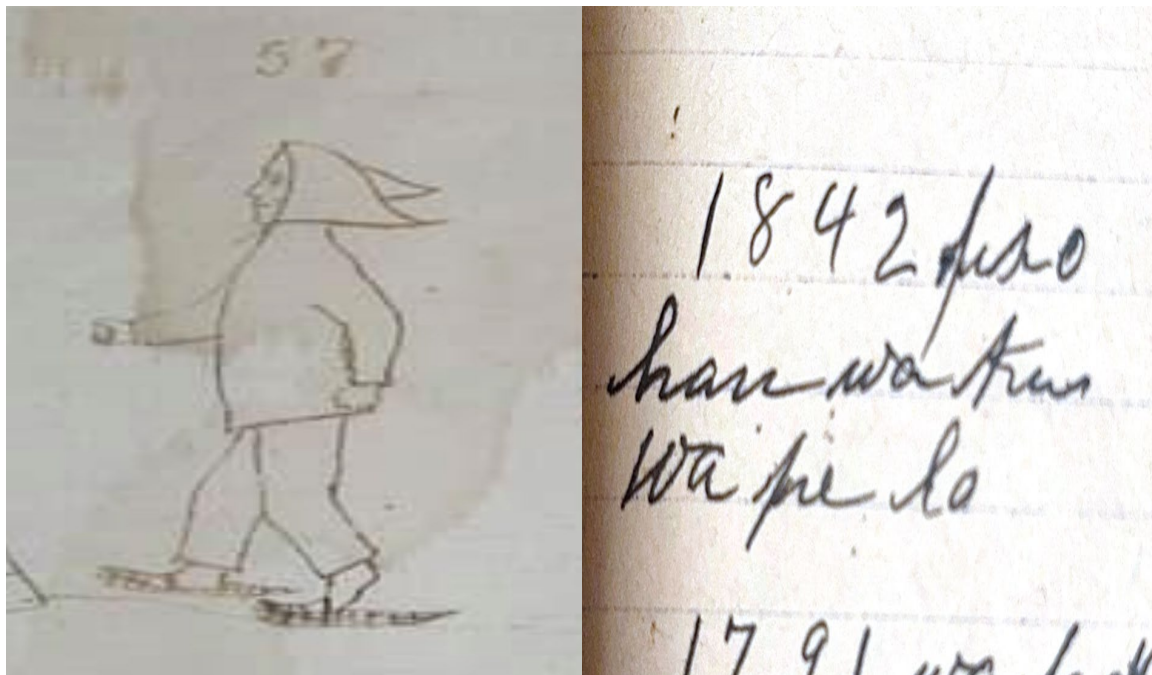 57
1842 pso
han wa
wa pe lo
1791 wa